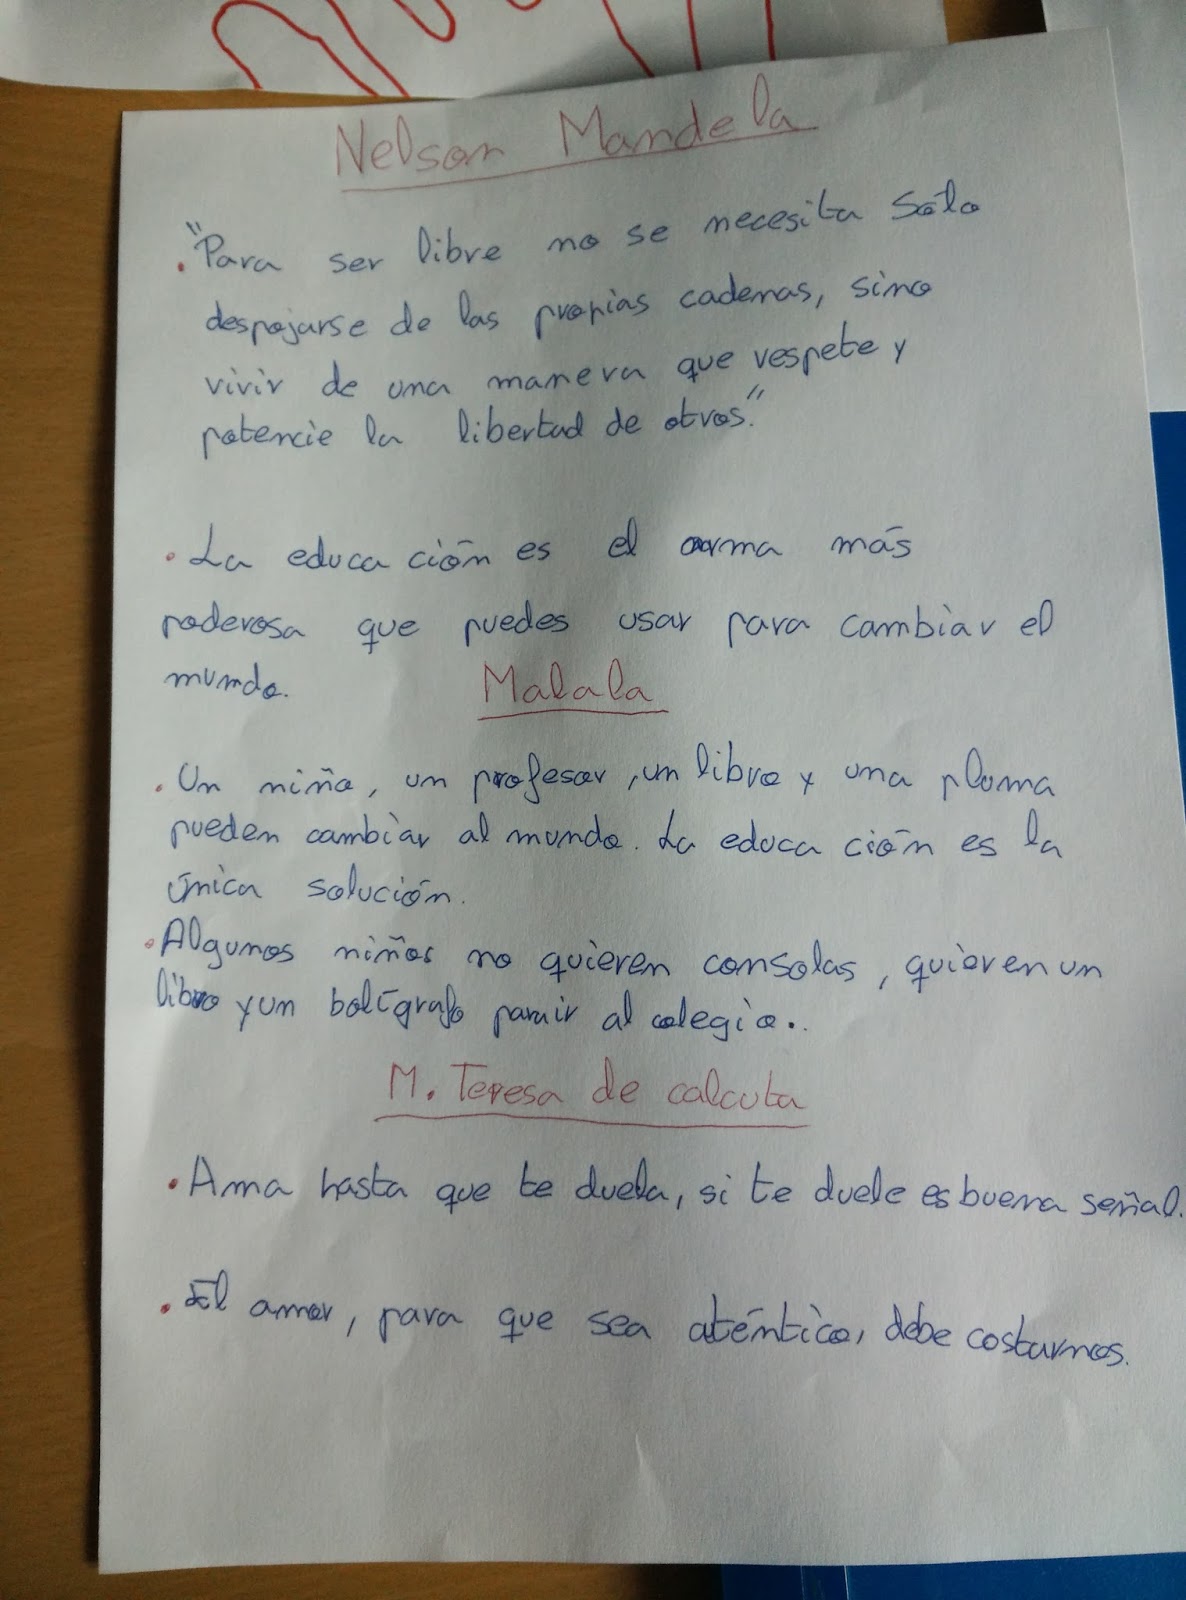 Nelson Mandela
• "Para ser libre no se necesita sólo
despojarse de las propias cadenas, sino
vivir de una manera que respete y
potencie la libertad de otros."
• La educación es el arma más
poderosa que puedes usar para cambiar el
mundo.
Malala
• Un niño, un profesor, un libro y una pluma
pueden cambiar al mundo. La educación es la
única solución.
• Algunos niños no quieren consolas, quieren un
libro y un bolígrafo para ir al colegio..
M. Teresa de calcuta
• Ama hasta que te duela, si te duele es buena señal.
• El amor, para que sea aténtico, debe costarnos.